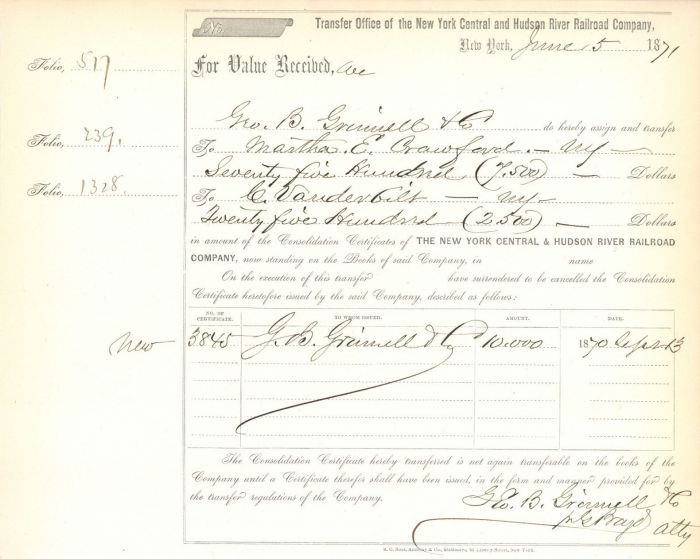 No.
Transfer Office of the New York Central and Hudson River Railroad Company,
New York, June 5 1871
Folio, 517
For Value Received, we
Geo. B. Grinnell & Co do hereby assign and transfer
Folio, 239.
To Martha. E. Crawford. — NY —
Seventy five Hundred (7.500) — Dollars
Folio, 1328.
To C. Vanderbilt — NY —
Twenty five Hundred (2500) — Dollars
in amount of the Consolidation Certificates of THE NEW YORK CENTRAL & HUDSON RIVER RAILROAD
COMPANY, now standing on the Books of said Company, in name
On the execution of this transfer have surrendered to be cancelled the Consolidation
Certificate heretofore issued by the said Company, described as follows:
NO. OF CERTIFICATE. TO WHOM ISSUED. AMOUNT. DATE.
New 3845 G. B. Grinnell & Co 10.000 1870 Sept 13
The Consolidation Certificate hereby transferred is not again transferable on the books of the
Company until a Certificate therefor shall have been issued, in the form and manner provided for by
the transfer regulations of the Company.
Geo. B. Grinnell & Co
Atty
New York.